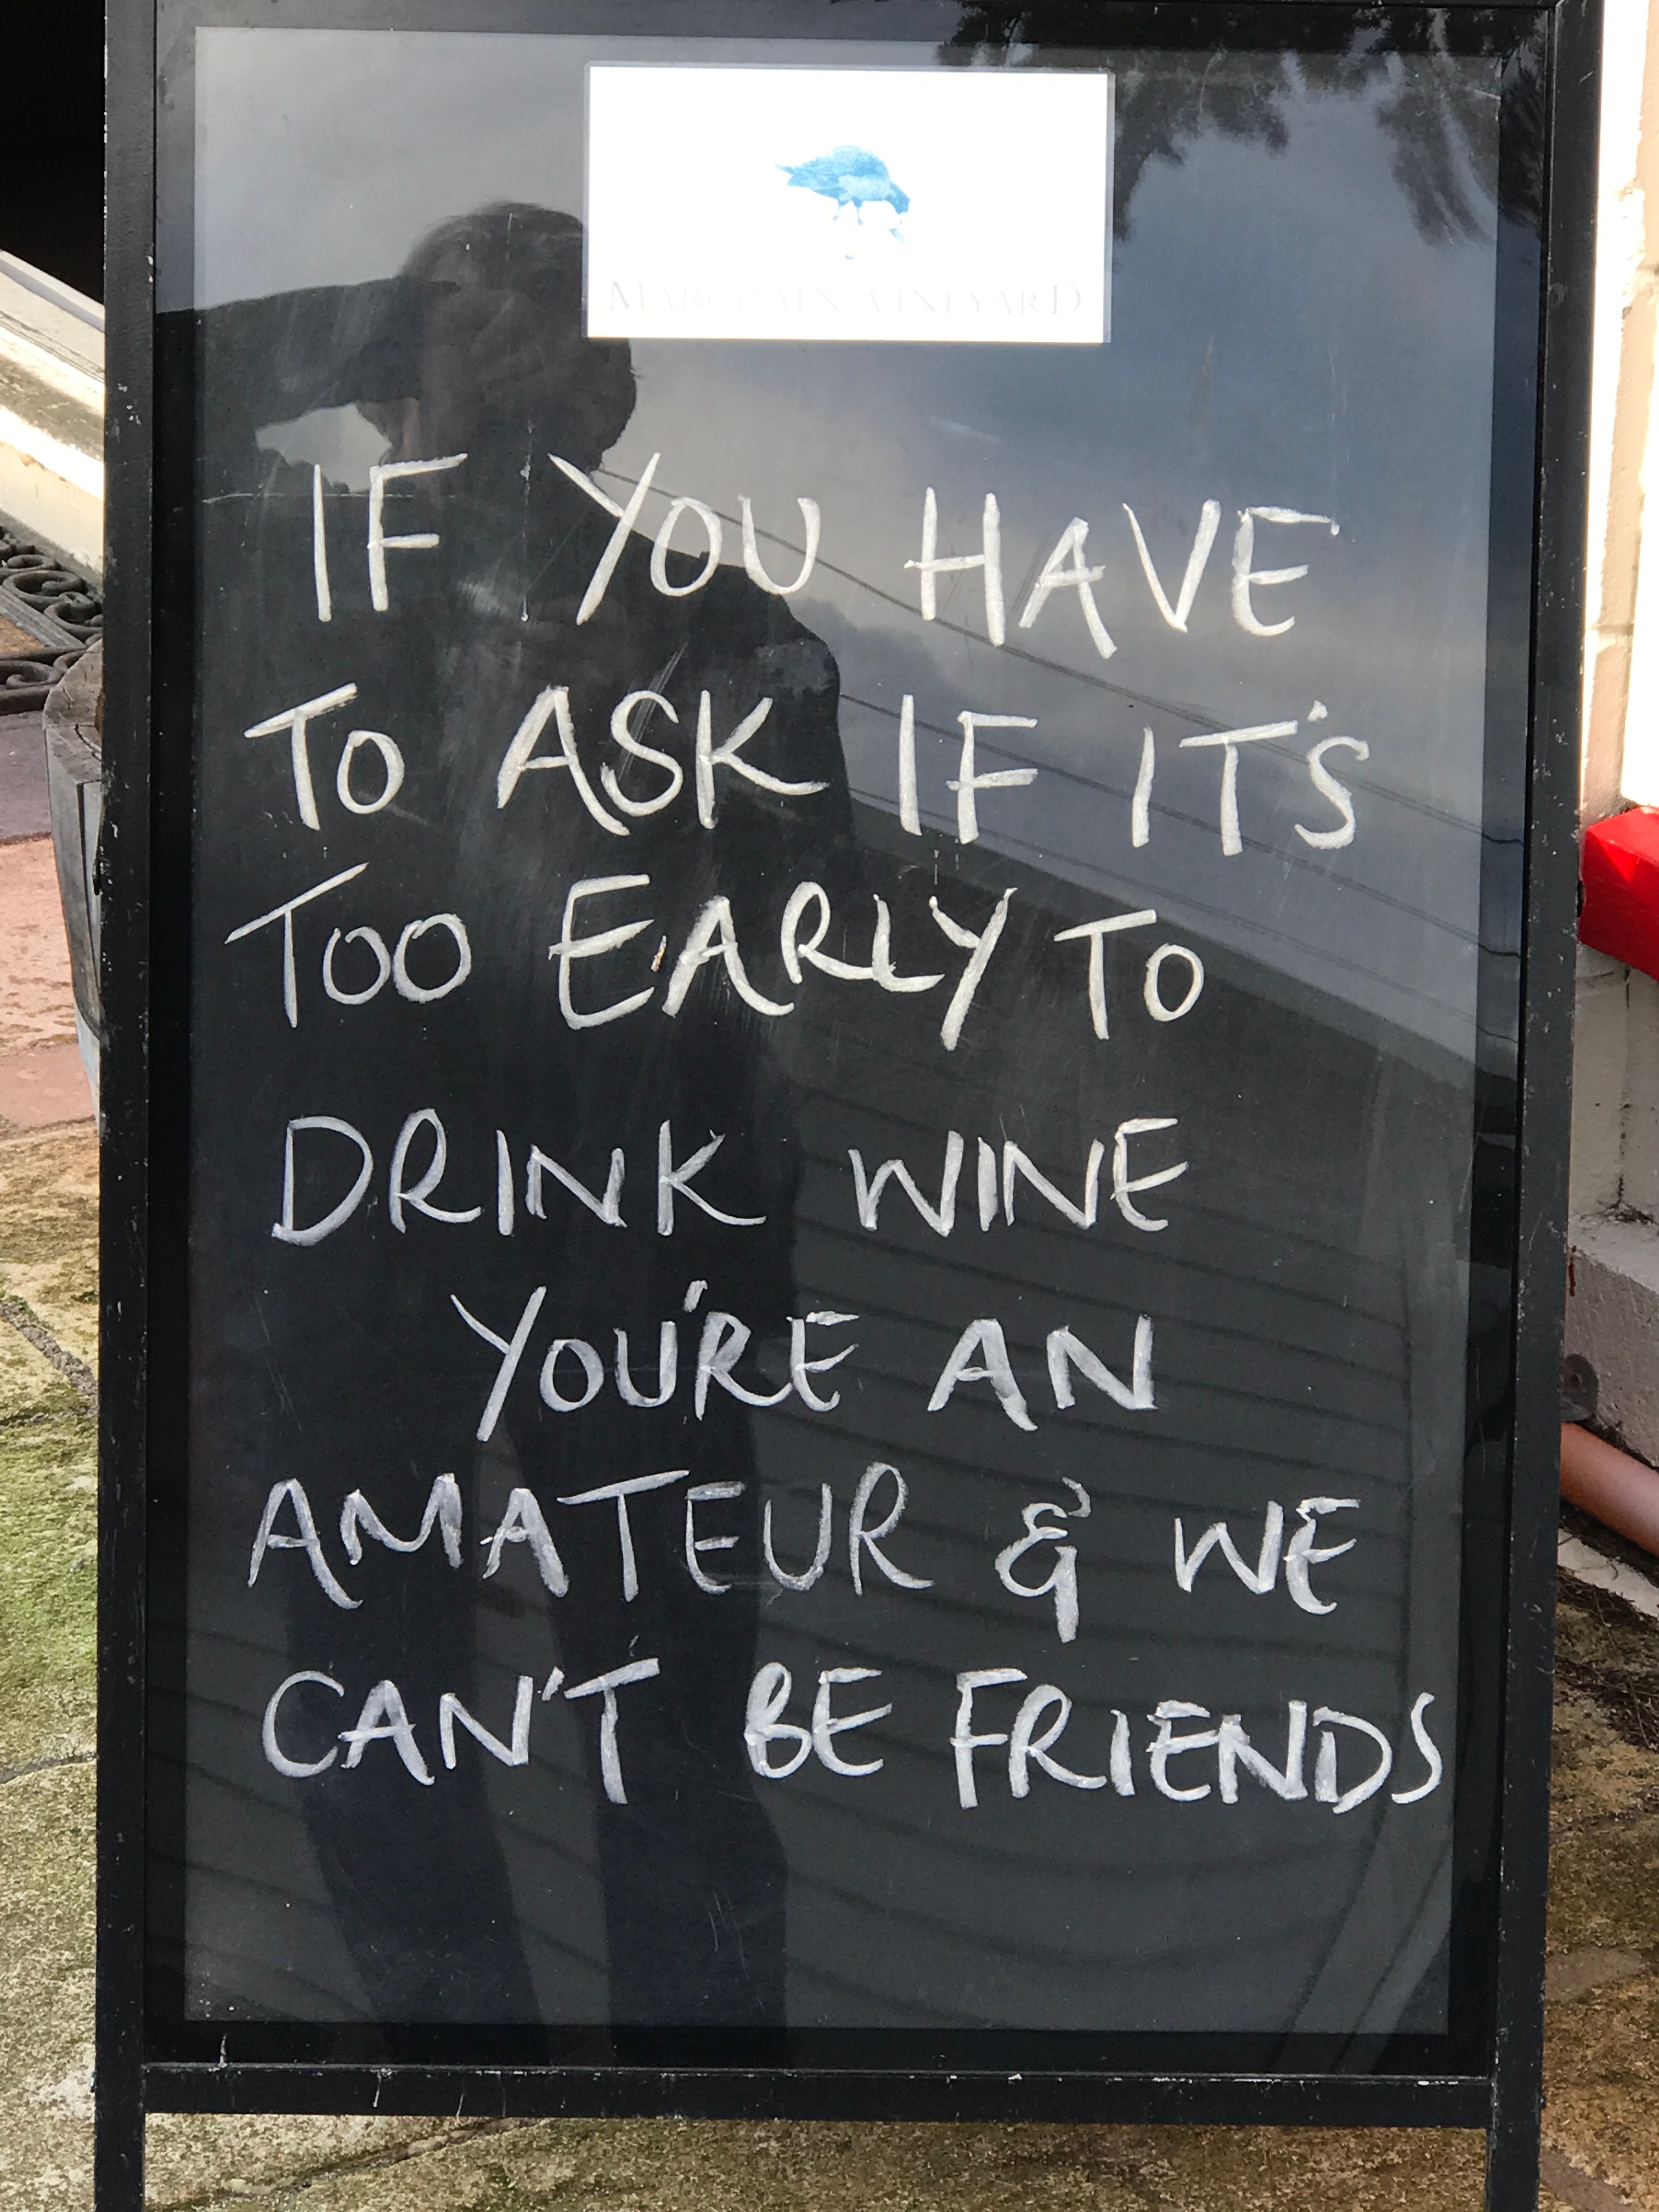 MARGRAIN VINEYARD
IF YOU HAVE
TO ASK IF IT'S
TOO EARLY TO
DRINK WINE
YOU'RE AN
AMATEUR & WE
CAN'T BE FRIENDS